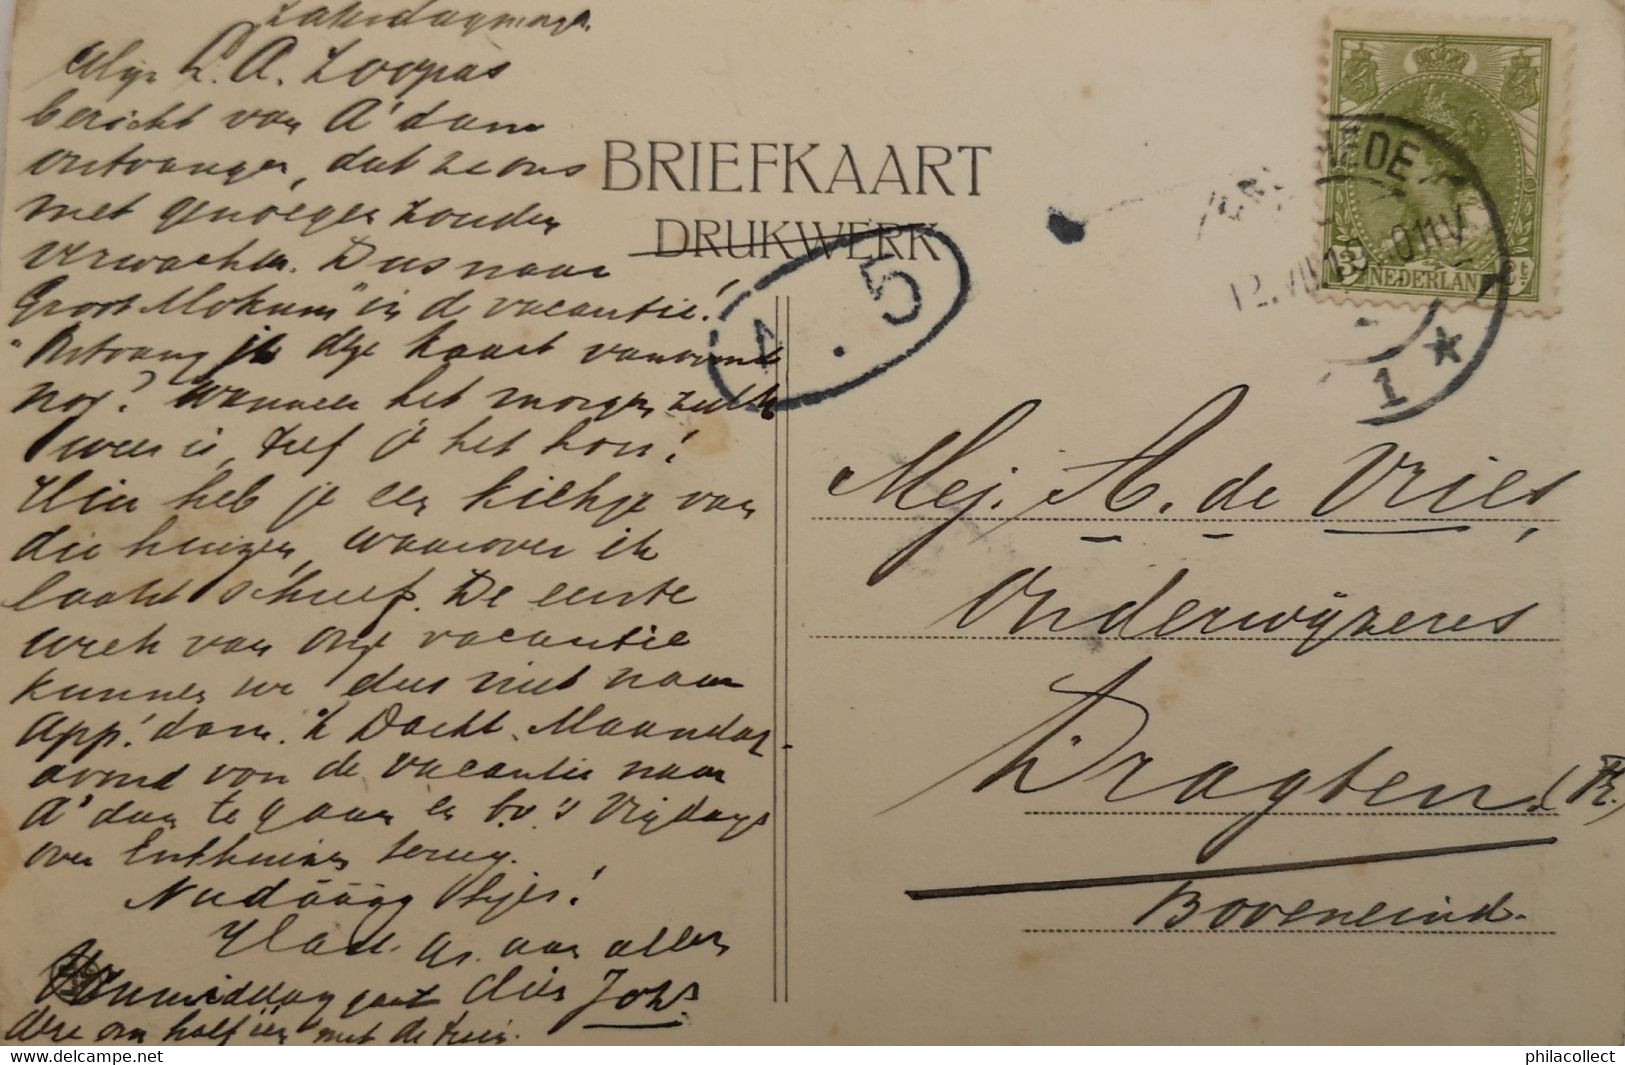 Zaterdagmorg.
L. A. Zoopas
bericht van A'dam
ontvangen, dat ze ons
met genoegen zouden
verwachten. Dus naar
Groot Mokum" in de vacantie!
Ontvang je dze kaart vanavond
nog? Wanneer het morgen zulk
weer is, tref je het hoor!
Hier heb je een kiekje van
die huizen, waarover ik
laatst schreef. De eerste
week van onze vacantie
kunnen we dus niet naar
App.'dam. 'k Dacht Maandag-
avond van de vacantie naar
A'dam te gaan en b.v. 's Vrijdags
over Enkhuizen terug.
Nu dáággg
Hart. gr. aan allen
Johs
deze om half één met de trein.
BRIEFKAART
DRUKWERK
1.5
NEDERLAND
1
Mej. A. de Vries,
Onderwijzeres
Dragten (Fr.)
Boveneind.
philacollect